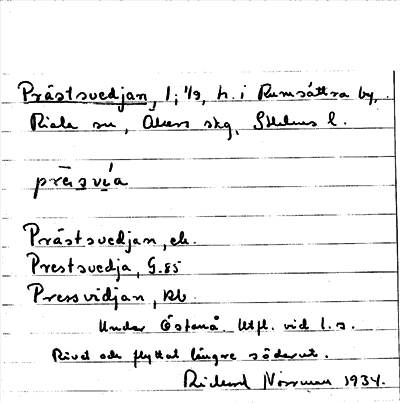 Prästsvedjan, 1; 1/9, h. i Rumsättra by,
Riala sn, Åkers skg, Sthlms l.
präsvia
Prästsvedjan, ek.
Prestsvedja, G.85
Pressvidjan, Kb
Under Östanå. Utfl. vid l.s.
Rivet och flyttat längre söderut.
Rickard Norrman 1934.